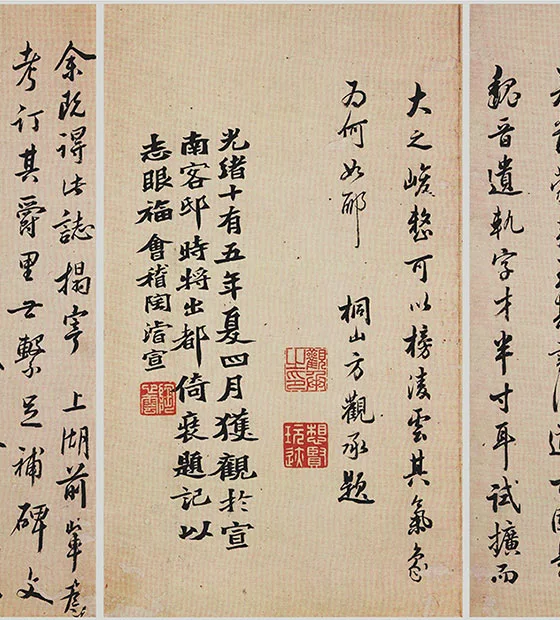 魏晉遺軌字才半寸耳試擴而
大之嶻嶪可以榜淩雲其氣象
為何如耶 桐山方觀承題
光緒十有五年夏四月獲觀於宣
南客邸時將出都倚裝題記以
志眼福 會稽陶濬宣
余既得此誌搨寄 上湖前輩
考訂其爵里世繫足補碑文